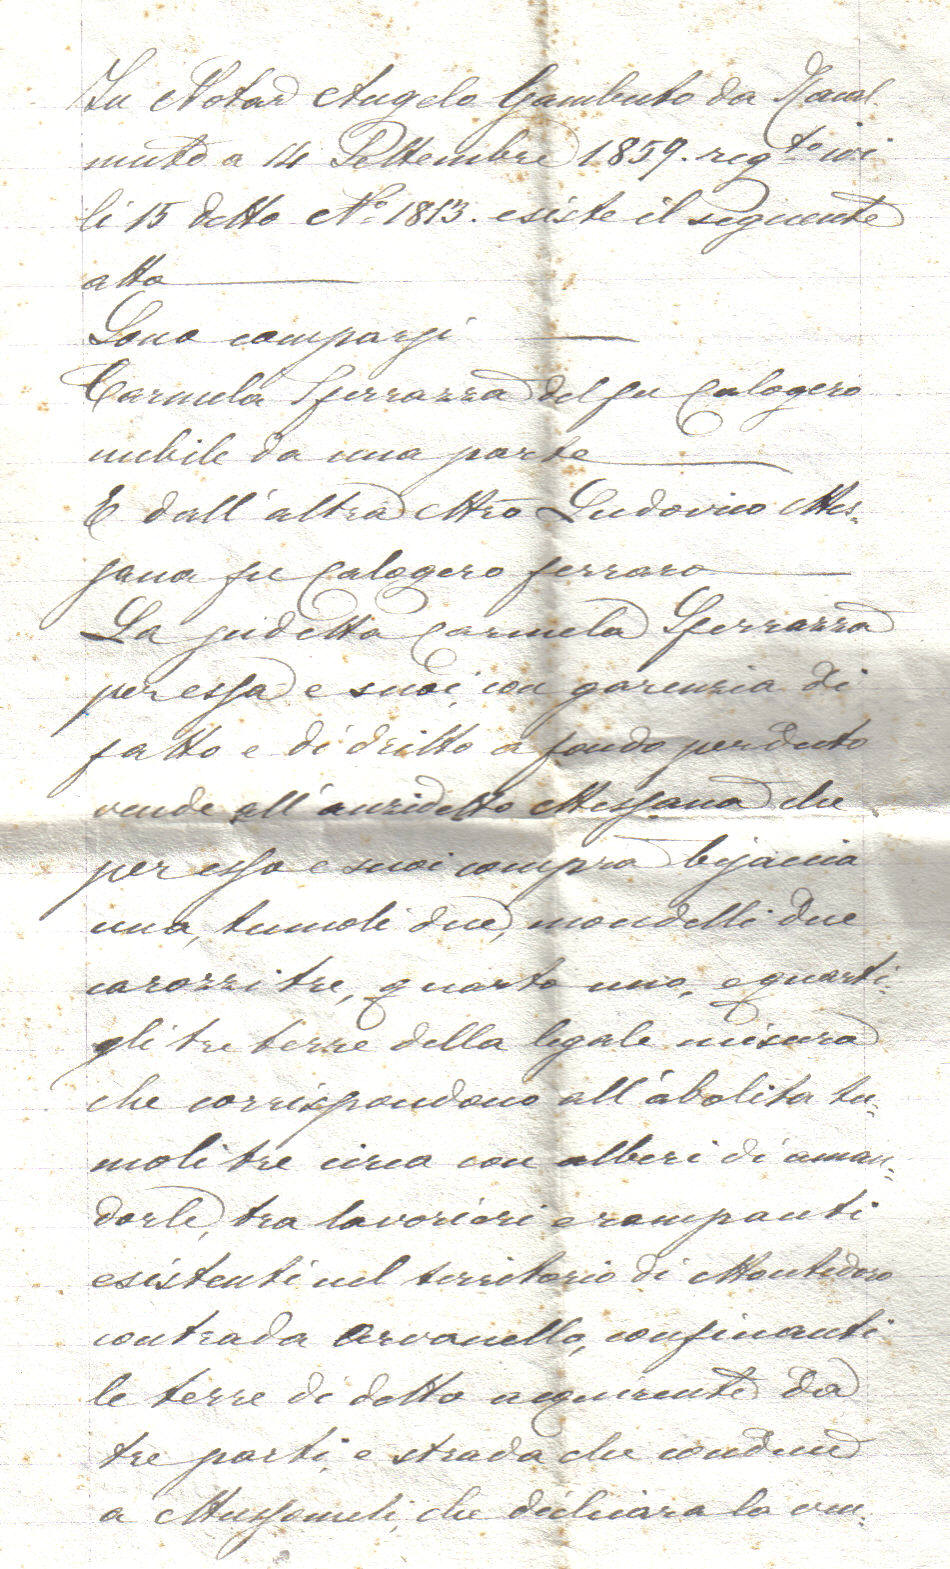 In Notar Angelo Gambuto da Racal
muto a 14 Settembre 1859. reg.to ivi
li 15 detto N.o 1813. esiste il seguente
atto
Sono comparsi
Carmela Sferrazza del fu Calogero
nubile da una parte
E dall'altra Mro Ludovico Mes=
sana fu Calogero ferraro
La sudetta Carmela Sferrazza
per essa e suoi, con garenzia di
fatto e di dritto a fondo perduto
vende all'anzidetto Messana che
per esso e suoi compra bisaccia
una, tumoli due, mondelli due
carozzi tre, quarto uno, e quarti=
gli tre terre della legale misura
che corrispondono all'abolita tu=
moli tre circa con alberi di aman=
dorle, tra lavorieri e rampanti
esistenti nel territorio di Montedoro
contrada confinanti
le terre di detto acquirente da
tre parti, e strada che conduce
a Mussomeli, che dichiara la ven=